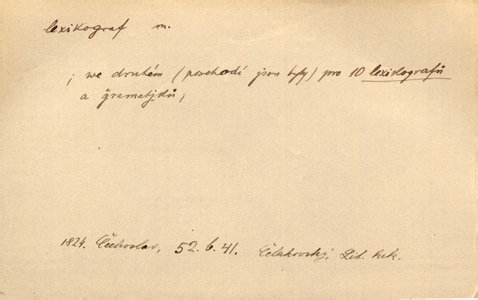 lexikograf m.
; we druhém (poschodí jsou byty) pro 10 lexikografů
a gramatjků;
1824. Čechoslav, 52. b. 41. Čelakovský, Lit. krk.